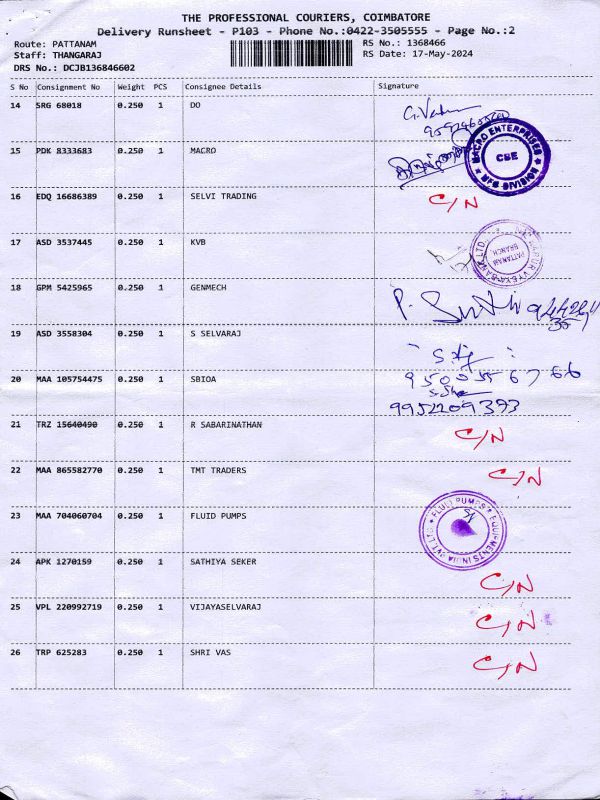 THE PROFESSIONAL COURIERS, COIMBATORE
Delivery Runsheet - P103 - Phone No.:0422-3505555 - Page No.:2
Route: PATTANAM RS No.: 1368466
Staff: THANGARAJ RS Date: 17-May-2024
DRS No.: DCJB136846602
S No Consignment No Weight PCS Consignee Details Signature
14 SRG 68018 0.250 1 DO
15 PDK 8333683 0.250 1 MACRO
MACRO ENTERPRISES CBE MFG DIVISION
16 EDQ 16686389 0.250 1 SELVI TRADING C/N
17 ASD 3537445 0.250 1 KVB
PATTANAM BRANCH
18 GPM 5425965 0.250 1 GENMECH
19 ASD 3558304 0.250 1 S SELVARAJ
9500556766
20 MAA 105754475 0.250 1 SBIOA
9952209393
21 TRZ 15640490 0.250 1 R SABARINATHAN C/N
22 MAA 865582770 0.250 1 TMT TRADERS C/N
23 MAA 704060704 0.250 1 FLUID PUMPS
FLUID PUMPS EQUIPMENTS INDIA PVT. LTD.
24 APK 1270159 0.250 1 SATHIYA SEKER C/N
25 VPL 220992719 0.250 1 VIJAYASELVARAJ C/N
26 TRP 625283 0.250 1 SHRI VAS C/N